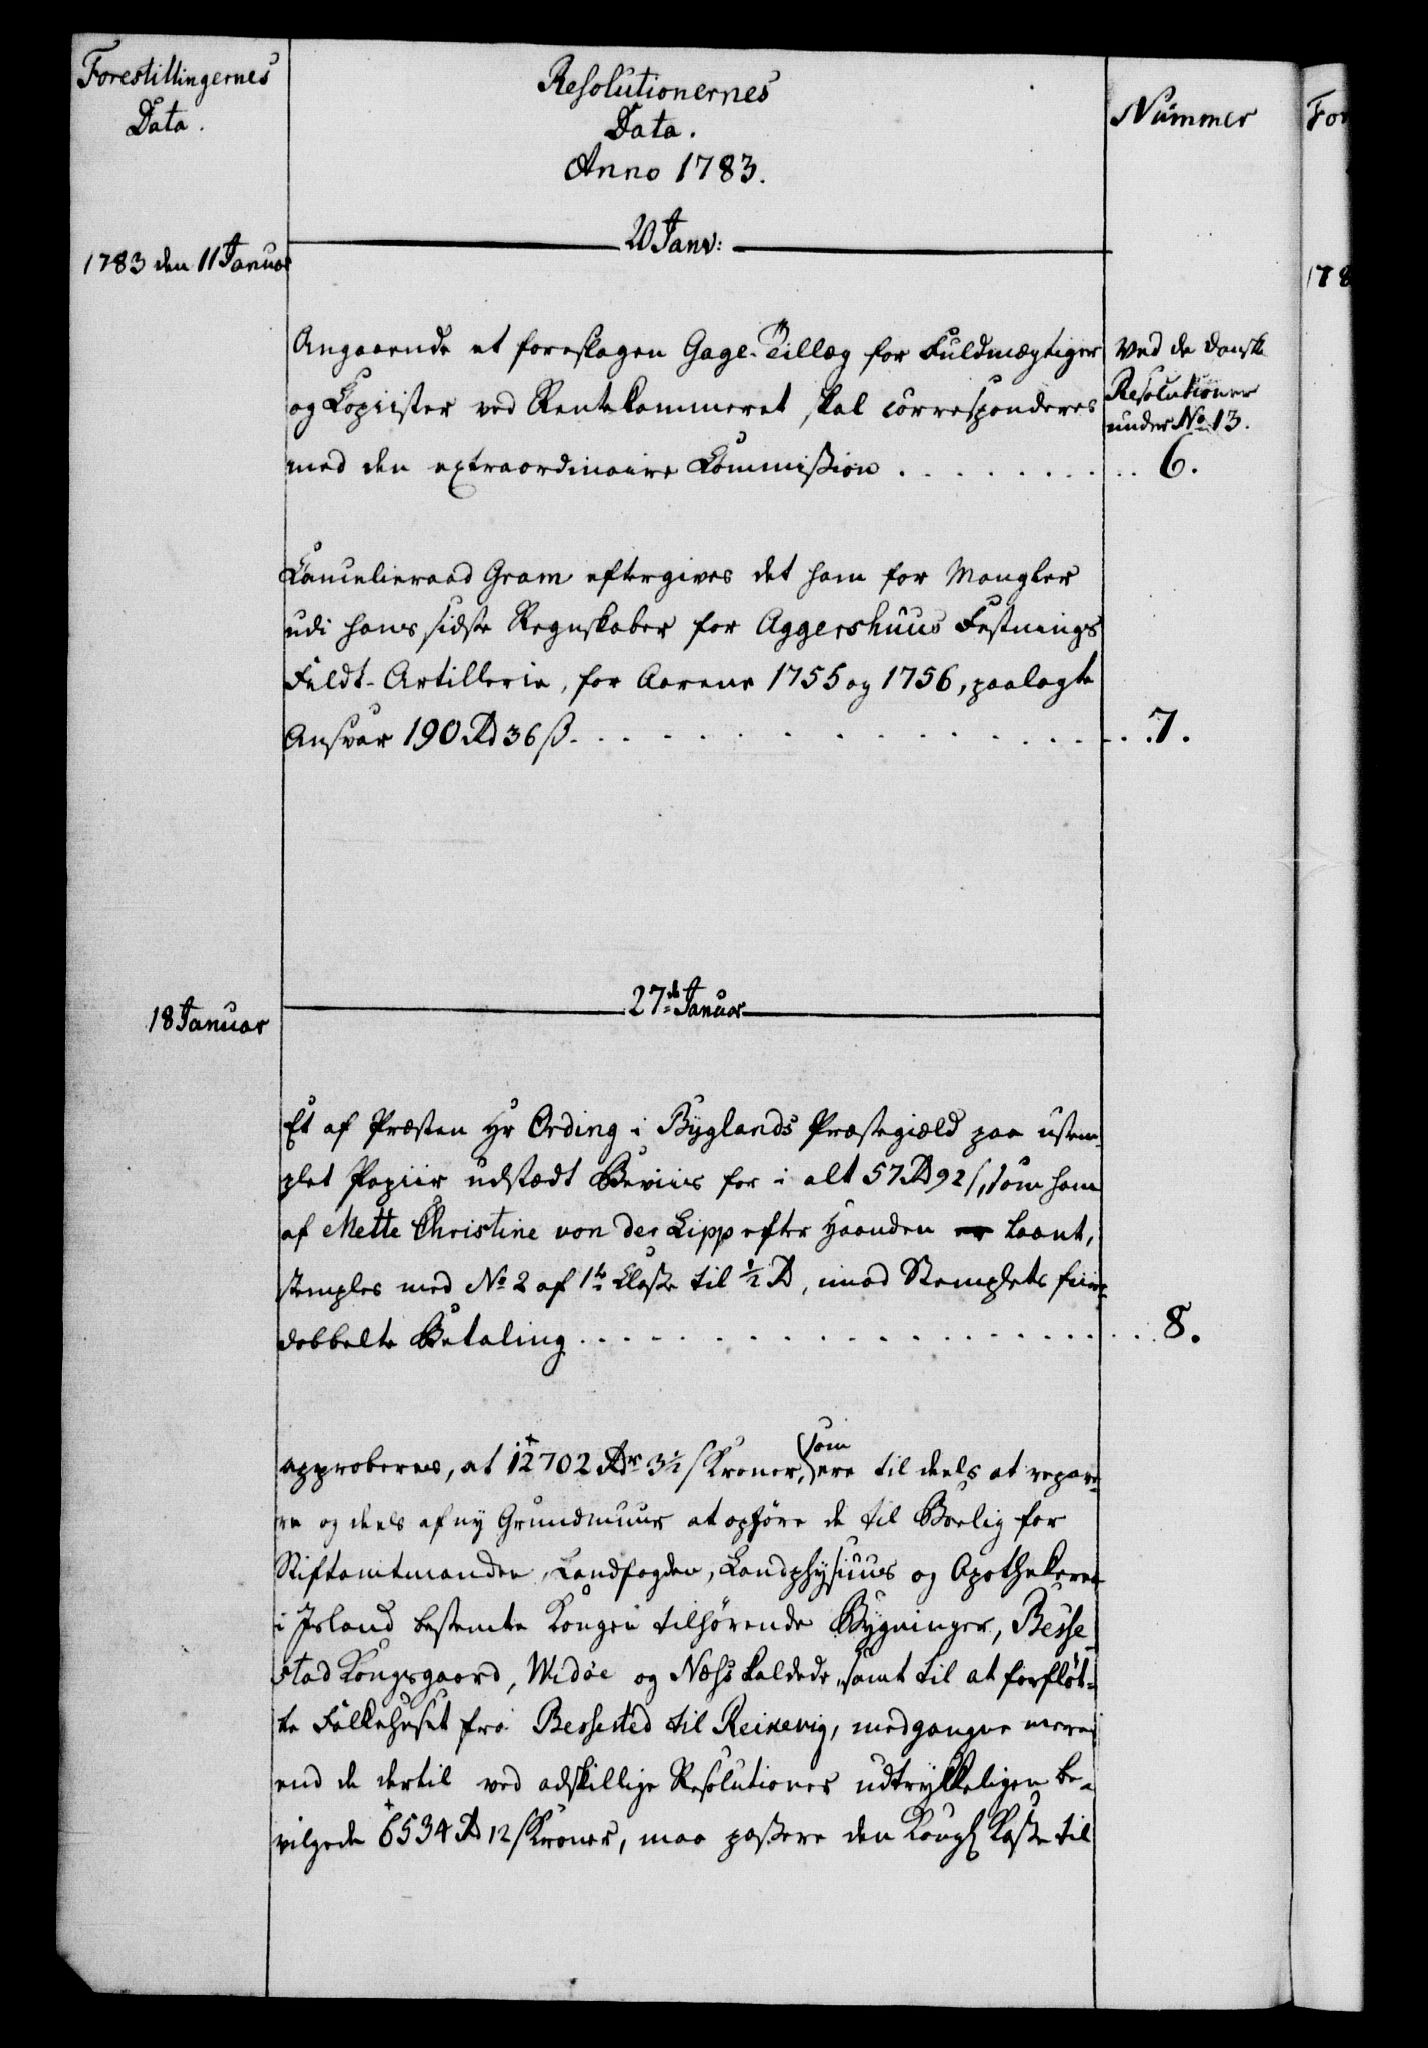 Forestillingernes
Data.
Resolutionernes
Data.
Anno 1783.
Nummer
20 Janv:
1783 den 11 Januar
Angaaende et foreslagen Gage-Tillæg for Fuldmægtiger
og Copiister ved Rentekammeret skal corresponderes
med den extraordinaire Commission . . . . . . . .
Ved de danske
Resolutioner
under No 13.
6.
Cancelieraad Gram eftergives det ham for Mangler
udi hans sidste Regnskaber for Aggershuus Festnings
Feldt-Artillerie, for Aarene 1755 og 1756, paalagte
Ansvar 190 Rd 36 ß. . . . . . . . . . . . . . . 7.
27de Januar
18 Januar
Et af Præsten Hr Ording i Byglands Præstegield paa ustem-
plet Papiir udstædt Beviis for i alt 57 Rd 92 ß, som ham
af Mette Christine von der Lipp efter Haanden er laant,
stemples med No 2 af 1te Classe til 1/2 Rd, imod Stemplets fiir-
dobbelte Betaling . . . . . . . . . . . . . . . . 8.
approberes, at 12702 Rdr 3 1/2 ß Kroner, som ere til deels at repare-
re og deels af ny Grundmuur at opføre de til Boelig for
Stiftamtmanden, Landfogden, Landphysicus og Apothekeren
i Island bestemte Kongen tilhørende Bygninger, Besse-
stad Kongsgaard, Widöe og Næss kaldede, samt til at forfløt-
te Folkehuset fra Bessested til Reikevig, medgangne mere
end de dertil ved adskillige Resolutioner udtrykkeligen be-
vilgede 6534 Rd 12 ß Kroner, maa passere den Kongl Kasse til